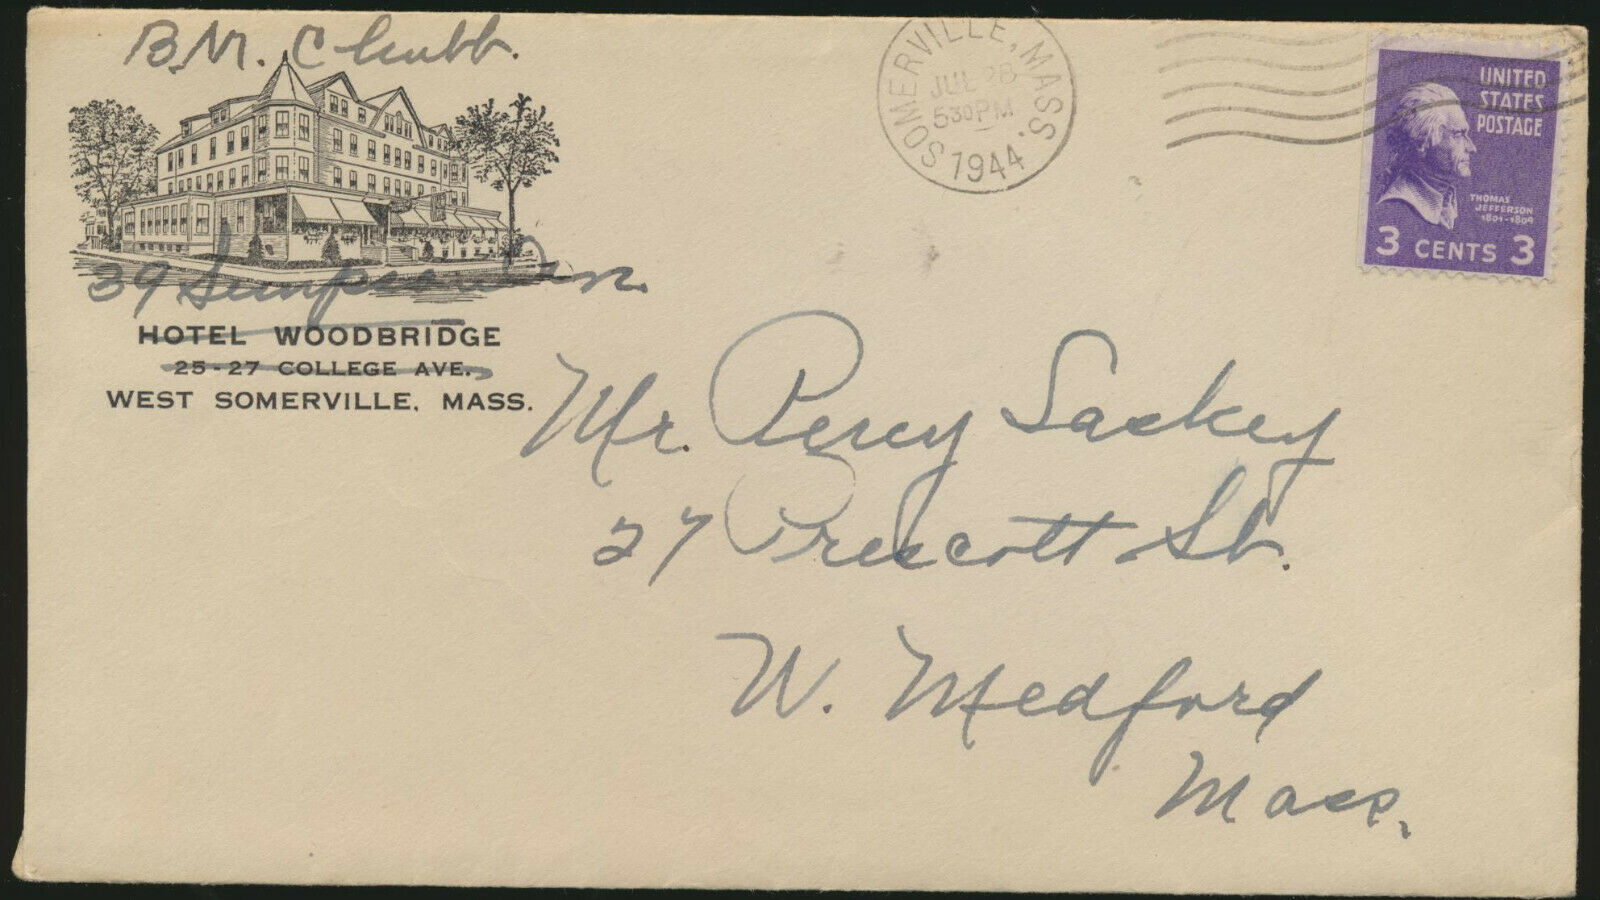 B.M. Chubb.
39
HOTEL WOODBRIDGE
25-27 COLLEGE AVE.
WEST SOMERVILLE, MASS.
SOMERVILLE, MASS.
JUL 28
530PM
1944
UNITED
STATES
POSTAGE
THOMAS
JEFFERSON
1801-1809
3 CENTS 3
Mr. Percy Sackey
27 Prescott St.
W. Medford
Mass.